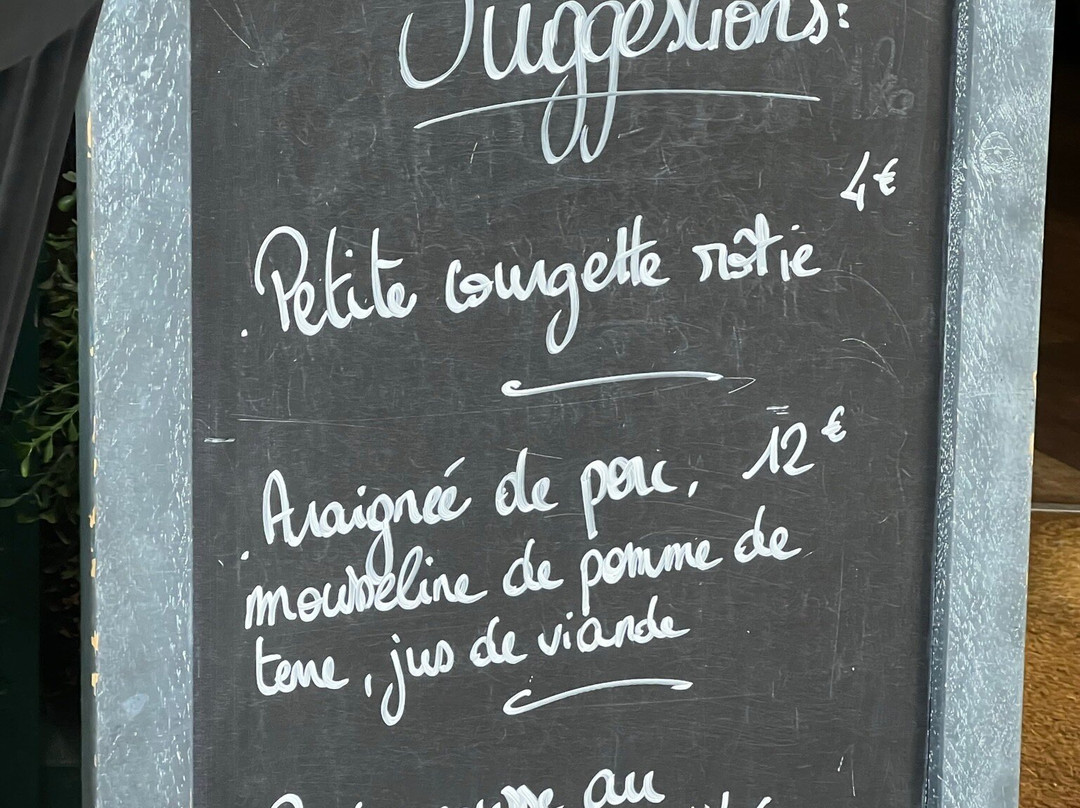 Suggestions:
4€
. Petite courgette rôtie
Araignée de porc, 12€
. mousseline de pomme de
terre, jus de viande
au